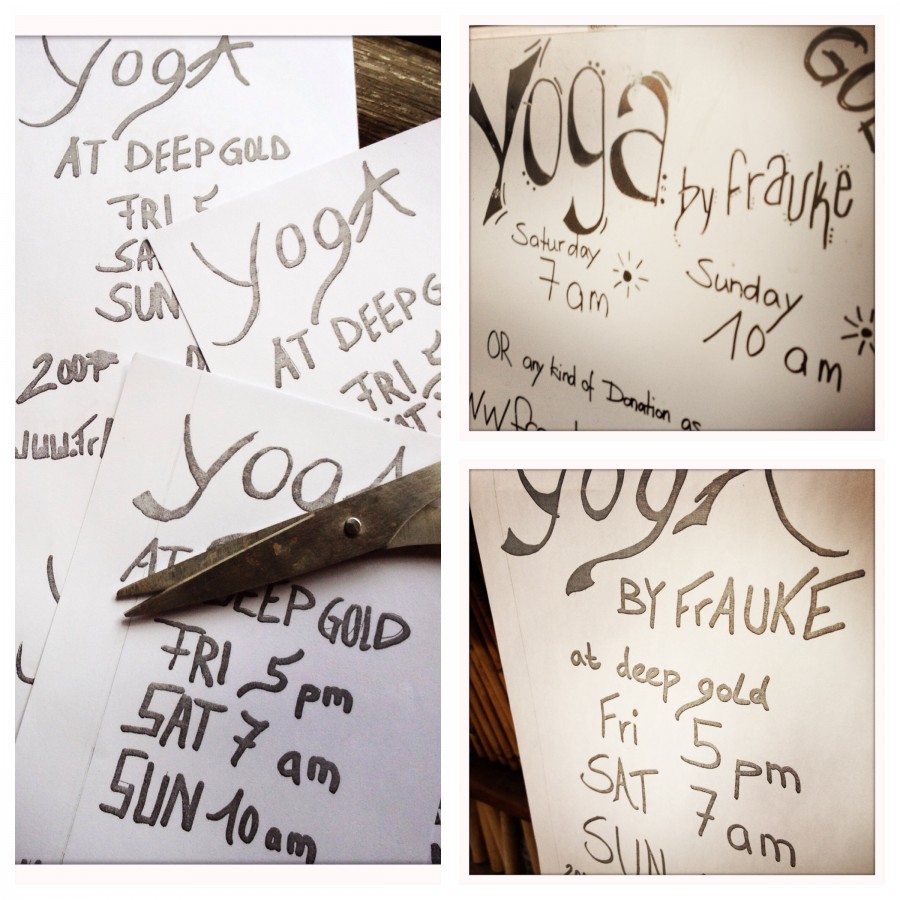 Yoga
AT DEEP GOLD
FRI 5
SUN
Yoga
FRI
Yoga
AT DEEP GOLD
FRI 5 pm
SAT 7 am
SUN 10 am
Yoga
by Frauke
Saturday
7 am
Sunday
10 am
OR any kind of Donation as
YogA
BY FrAUKE
at deep gold
Fri 5 pm
SAT 7 am
SUN